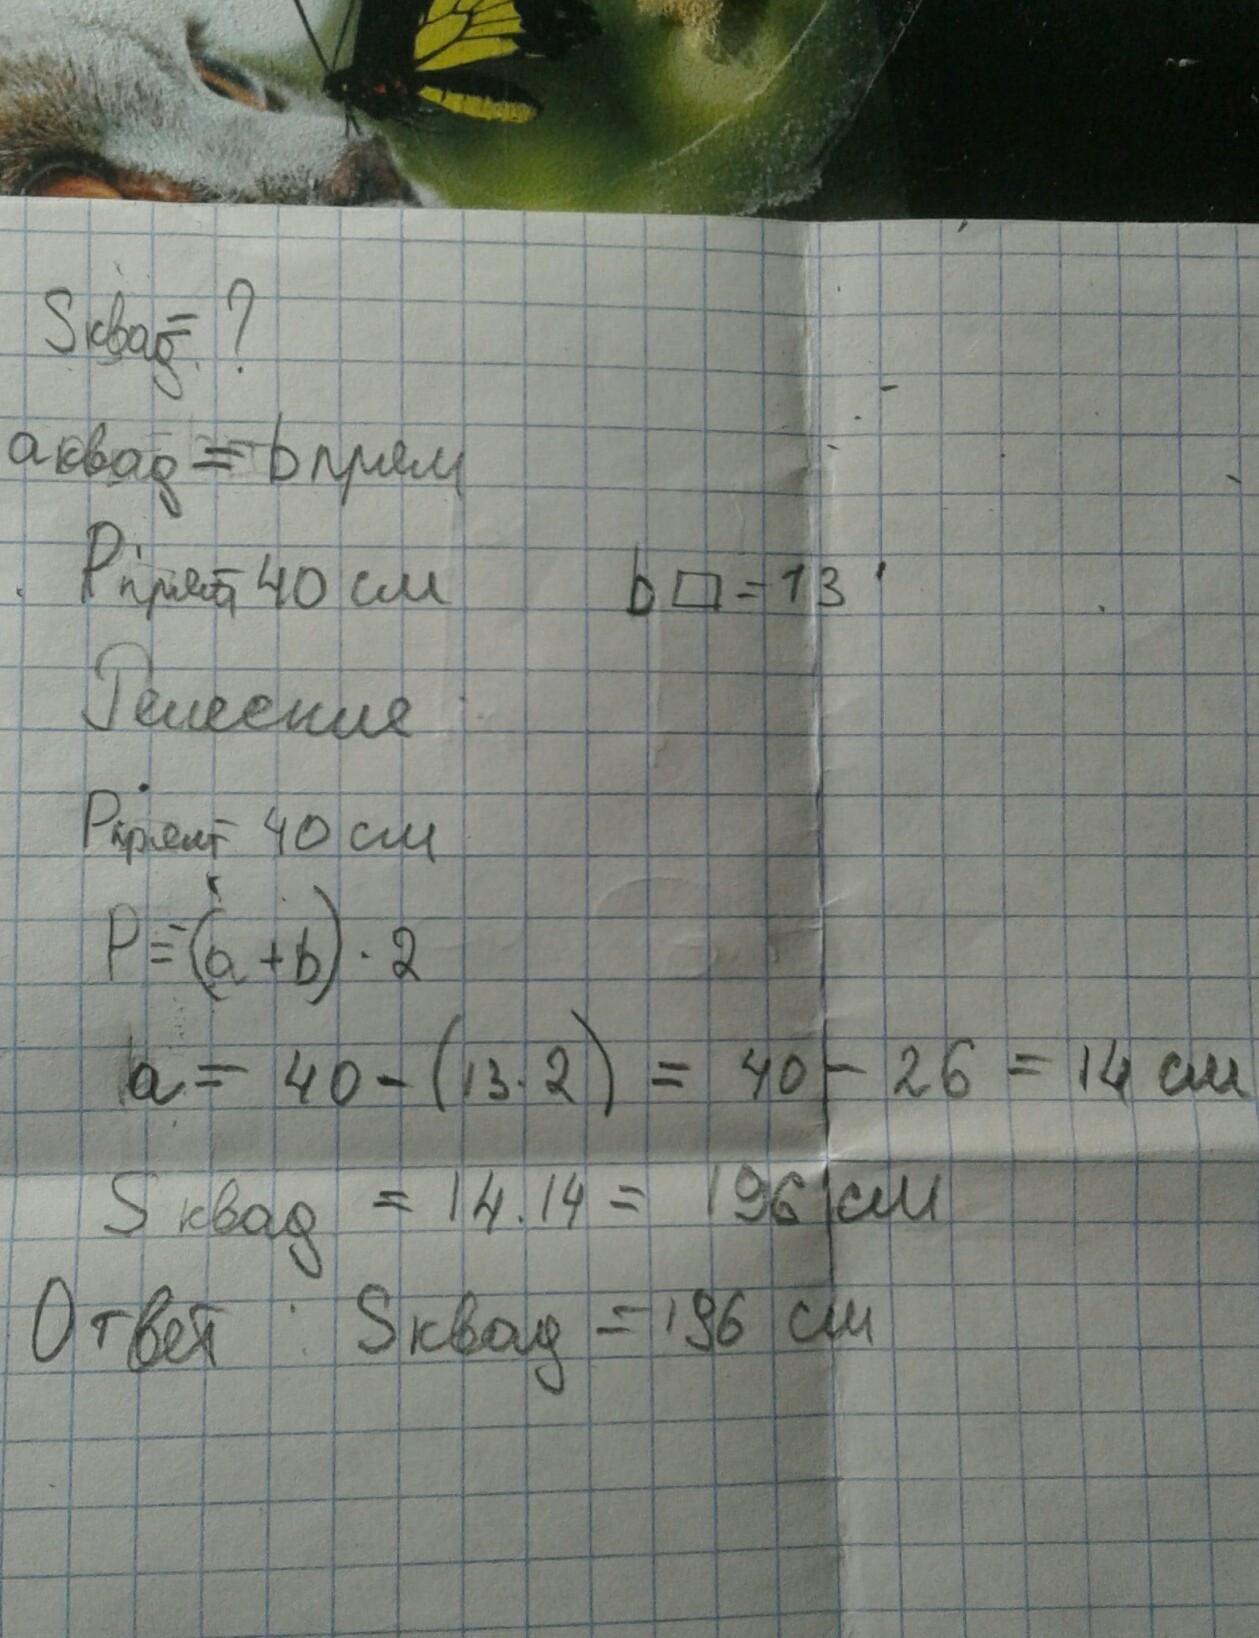 Sквад = ?
aквад = bпрям
Pпрям = 40 см b▭ = 13
Решение
Pпрям = 40 см
P = (a + b) · 2
a = 40 - (13 · 2) = 40 - 26 = 14 см
Sквад = 14 . 14 = 196 см
Ответ : Sквад = 196 см